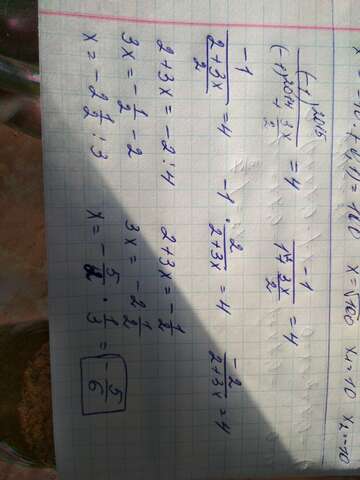 = 100 x = √100 x₁ = 10 x₂ = -10
(-1)^2015 / ((-1)^2014 + 3x/2) = 4 -1 / (1 + 3x/2) = 4
-1 / ((2+3x)/2) = 4 -1 · 2/(2+3x) = 4 -2/(2+3x) = 4
2+3x = -2:4 2+3x = -1/2
3x = -1/2 - 2 3x = -2 1/2
x = -2 1/2 : 3 x = -5/2 · 1/3 = -5/6